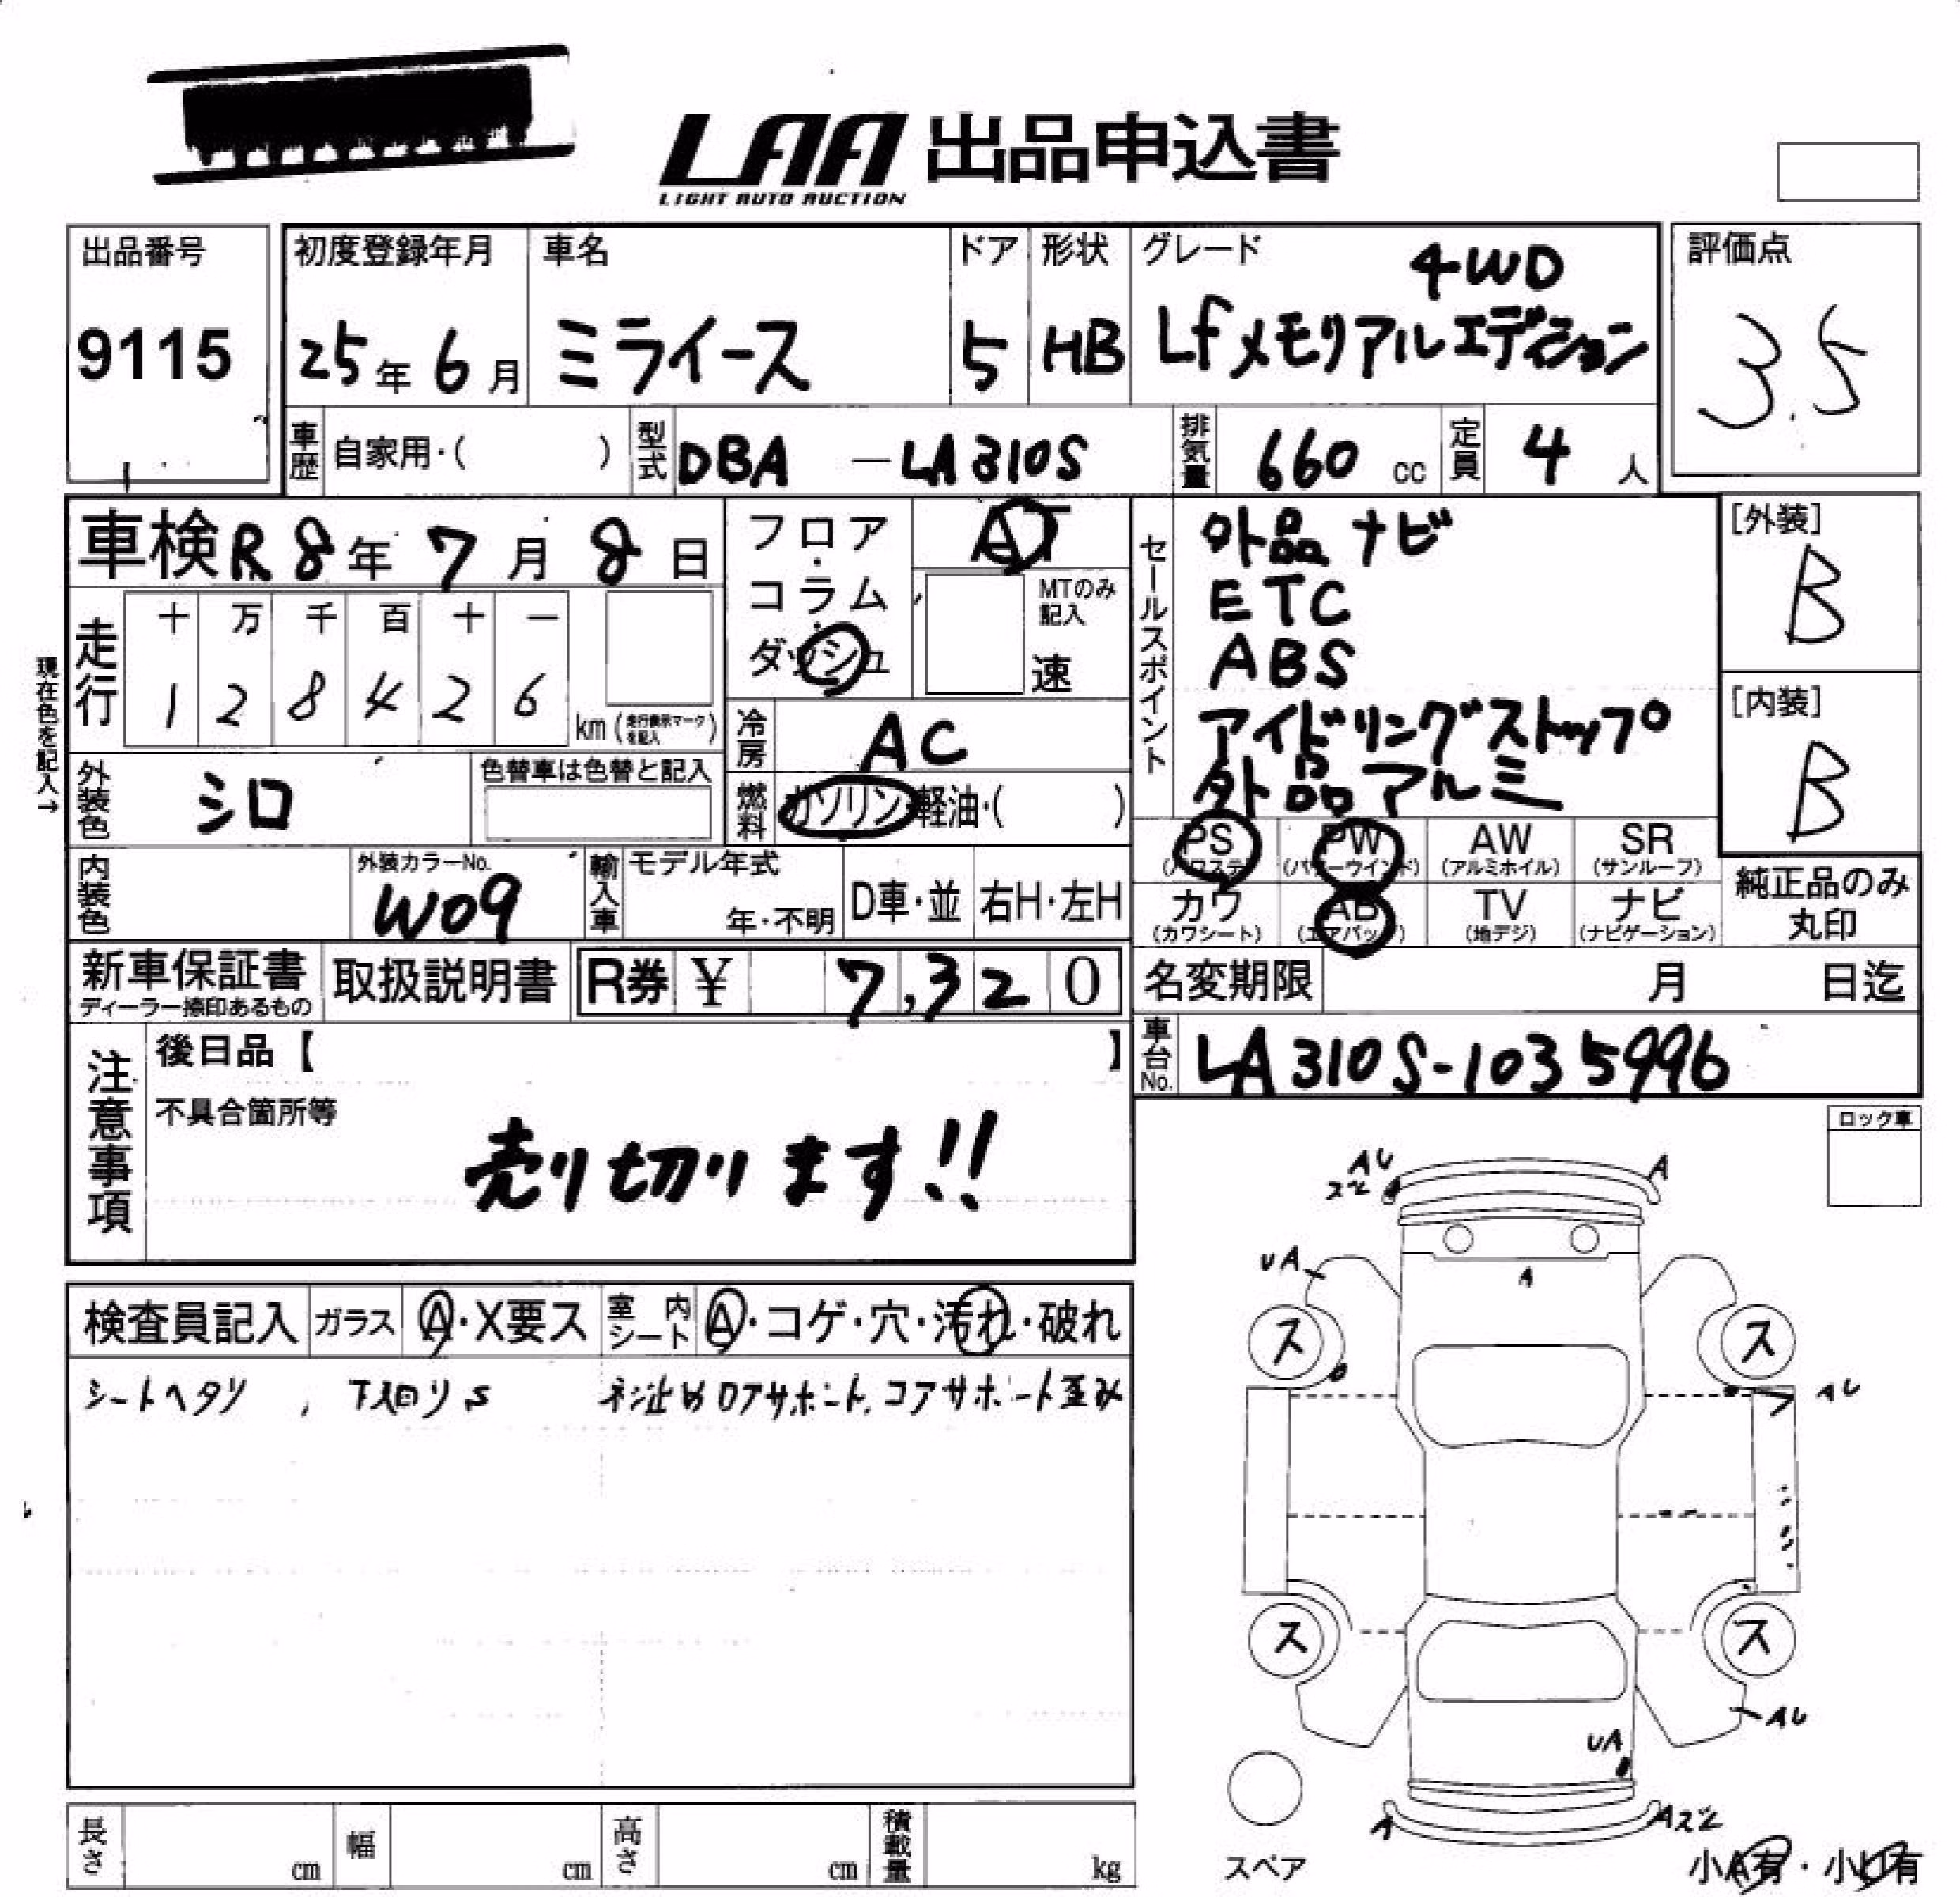 LAA 出品申込書
LIGHT AUTO AUCTION
出品番号
9115
初度登録年月
25年 6月
車名
ミライース
ドア
5
形状
HB
グレード
4WD
Lfメモリアルエディション
評価点
3.5
車歴 自家用・( )
型式 DBA - LA310S
排気量 660 cc
定員 4 人
車検 R8年 7月 8日
フロア・コラム・ダッシュ
AT
MTのみ記入
速
セールスポイント
外品 ナビ
ETC
ABS
アイドリングストップ
外品アルミ
[外装]
B
[内装]
B
現在色を記入→
走行
十 万 千 百 十 一
1 2 8 4 2 6
km (走行表示マークを記入)
冷房 AC
外装色 シロ
色替車は色替と記入
燃料 ガソリン・軽油・( )
PS (パワステ)
PW (パワーウインド)
AW (アルミホイル)
SR (サンルーフ)
カワ (カワシート)
AB (エアバッグ)
TV (地デジ)
ナビ (ナビゲーション)
純正品のみ丸印
内装色
外装カラーNo.
W09
輸入車 モデル年式
年・不明
D車・並
右H・左H
新車保証書
ディーラー捺印あるもの
取扱説明書
R券 ¥ 7,320
名変期限 月 日迄
車台No. LA310S-1035996
注意事項
後日品【 】
不具合箇所等
売り切ります!!
ロック車
検査員記入 ガラス A・X要ス 室内シート A・コゲ・穴・汚れ・破れ
シートヘタリ , 下回りS ネジ止めロアサポート,コアサポート歪み
AU
A
UA
A
ス
ス
AU
ス
ス
AU
UA
A
スペア
小A有・小U有
長さ cm
幅 cm
高さ cm
積載量 kg